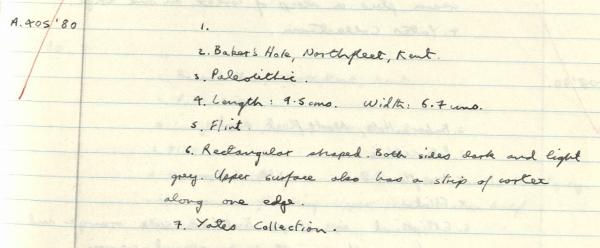 A.405 '80
1.
2. Baker's Hole, Northfleet, Kent.
3. Paleolithic.
4. Length: 9.5 cms. Width: 6.7 cms.
5. Flint
6. Rectangular shaped. Both sides dark and light
grey. Upper surface also has a strip of cortex
along one edge.
7. Yates Collection.